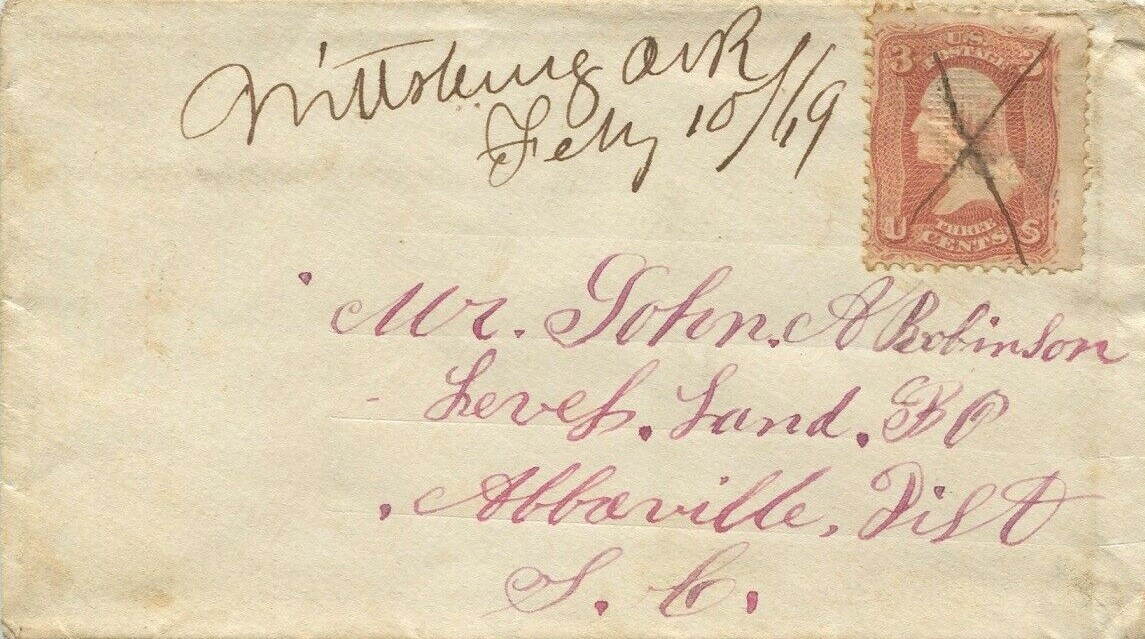 Wittsburg Ark
Feby 10/69
U.S.
POSTAGE
3 3
U S
THREE
CENTS
Mr. John. A Robinson
Level. Land. PO
Abbaville, Dist
S. C.